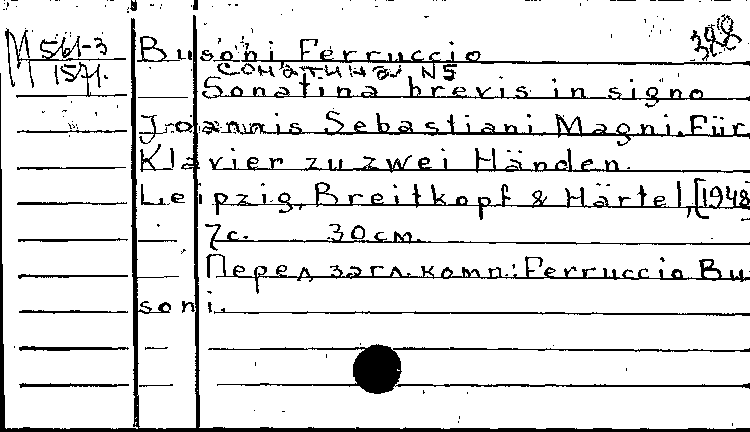 М 561-3
1571.
388
Busoni Ferruccio
Сонатина N5
Sonatina brevis in signo
Joannis Sebastiani Magni. Für
Klavier zu zwei Händen.
Leipzig, Breitkopf & Härtel, [1948
7с. 30 см.
Перед загл. комп.: Ferruccio Bu
soni.